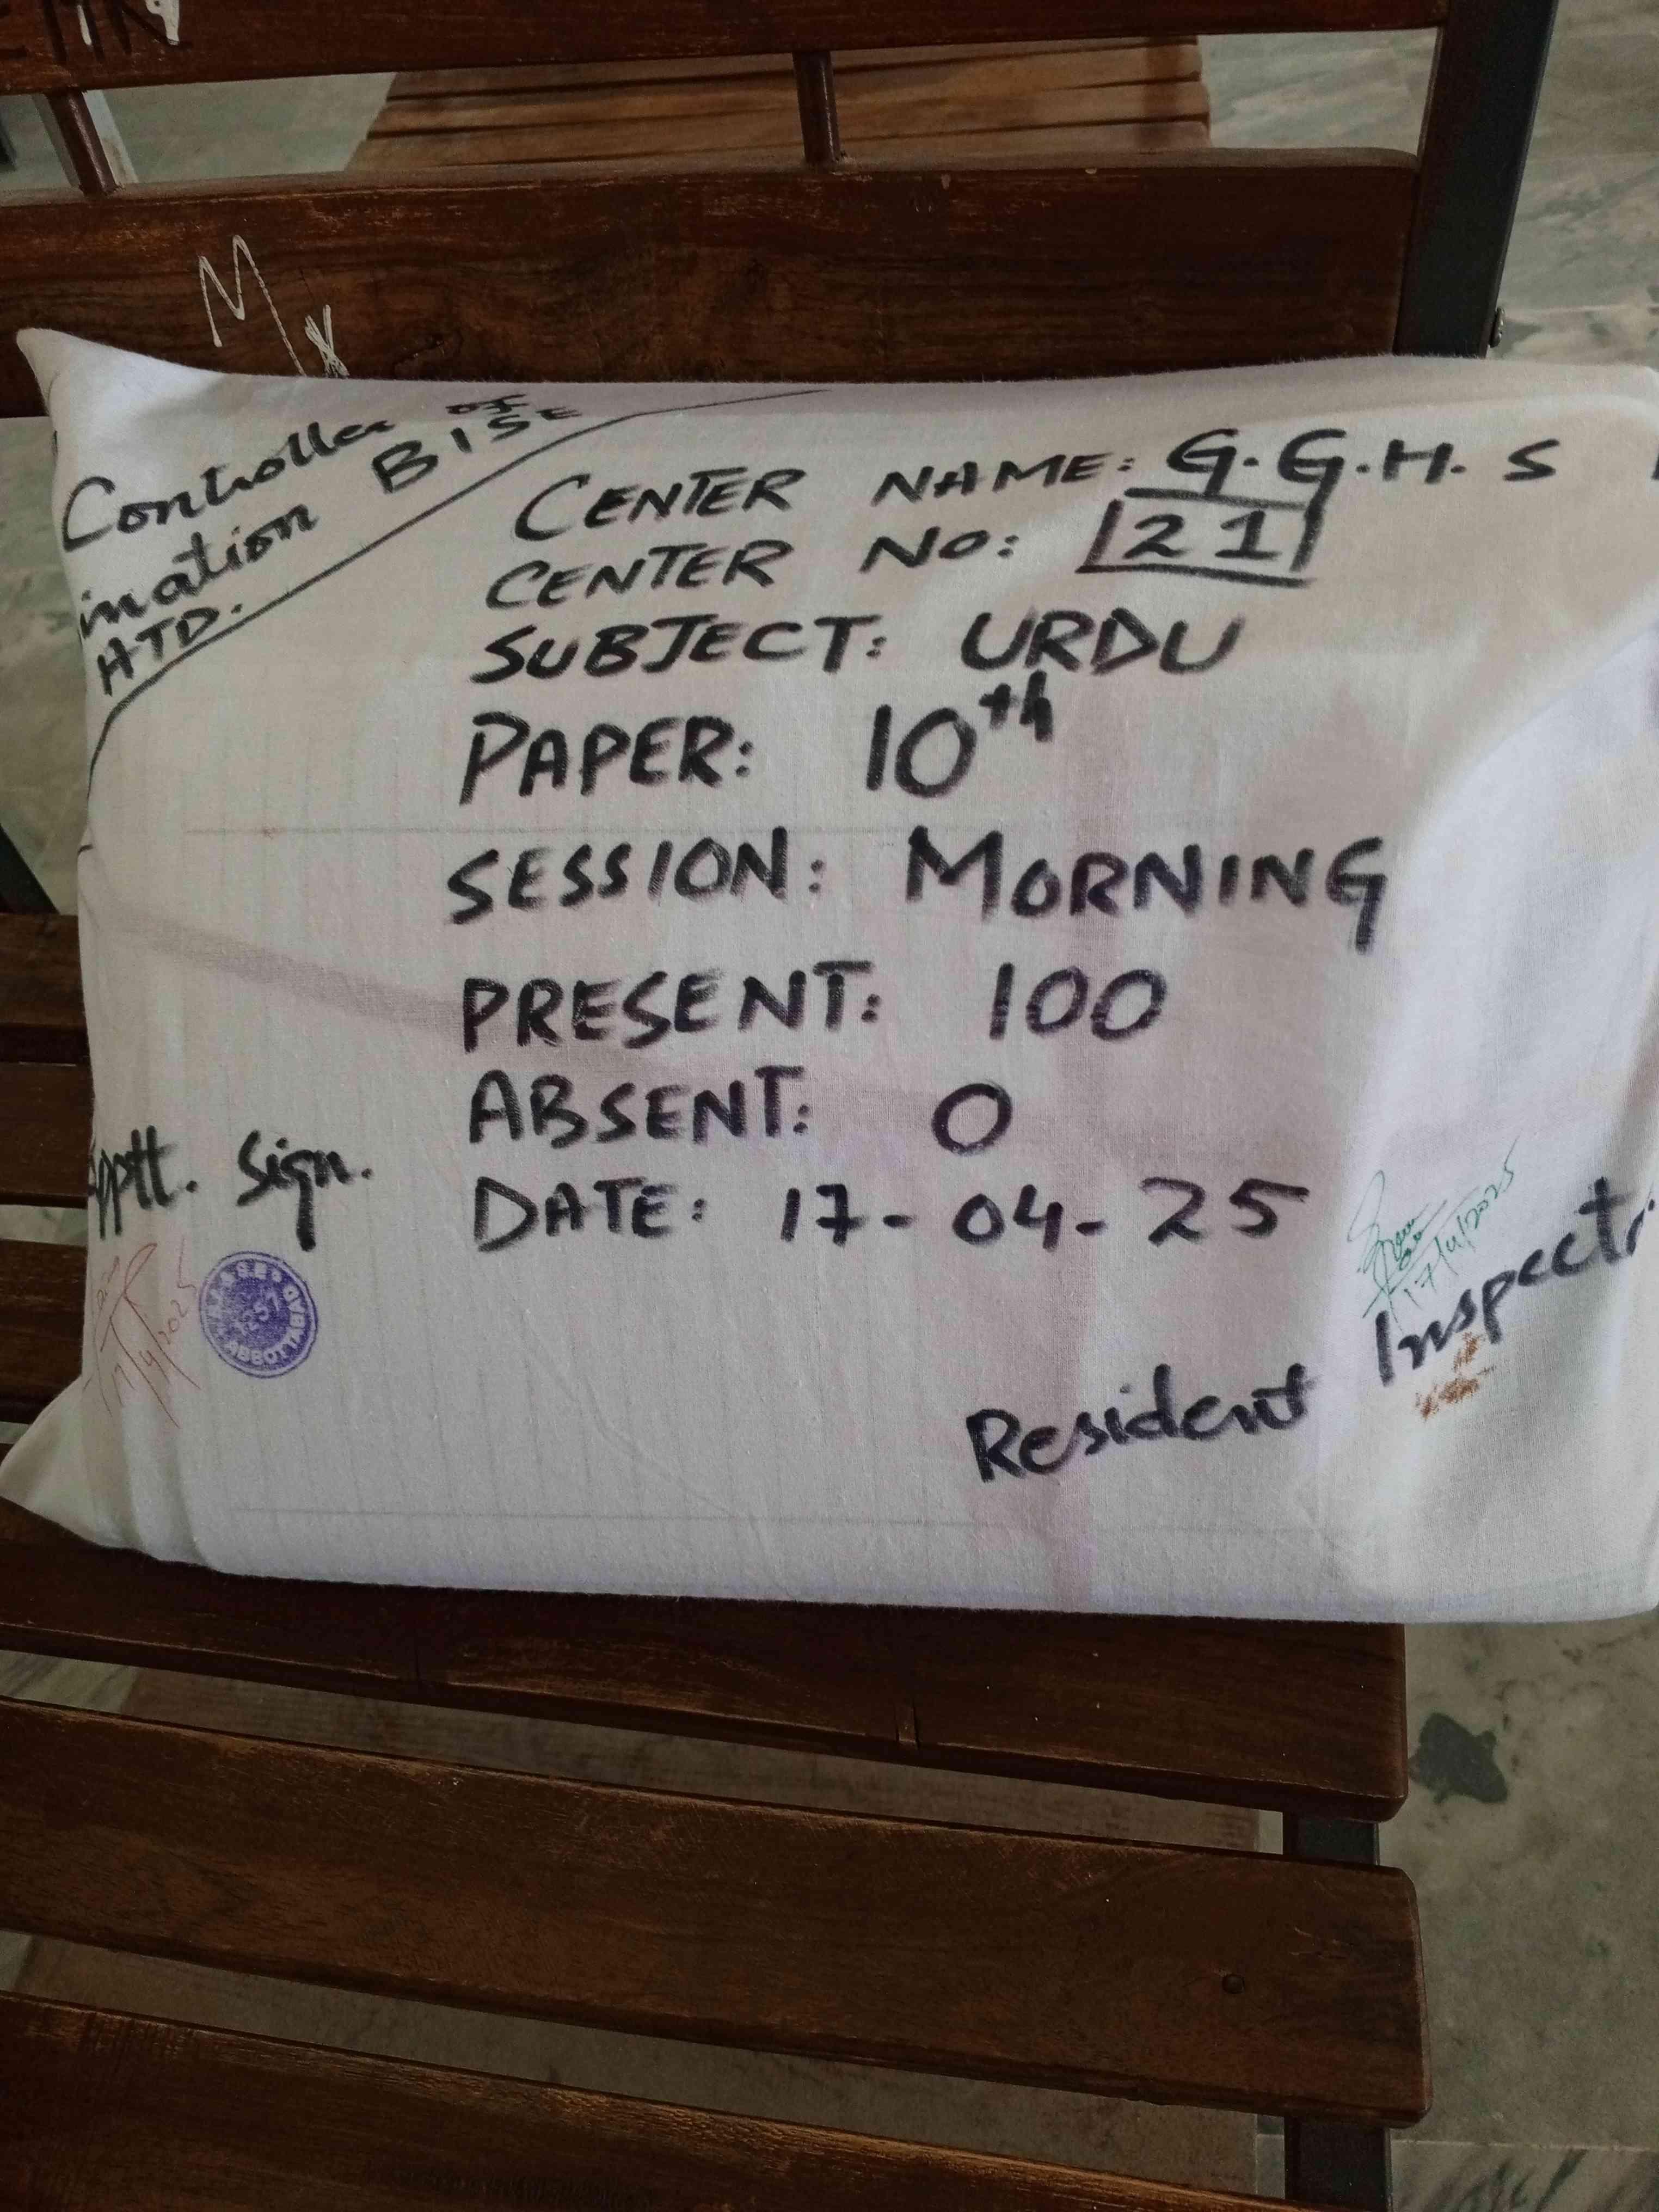 Controller of
ination BISE
ATD.
CENTER NAME: G.G.H.S
CENTER NO: 21
SUBJECT: URDU
PAPER: 10th
SESSION: MORNING
PRESENT: 100
ABSENT: 0
DATE: 17-04-25
pptt. Sign.
17/4/2025
ABBOTTABAD
17/4/2025
Resident Inspecto